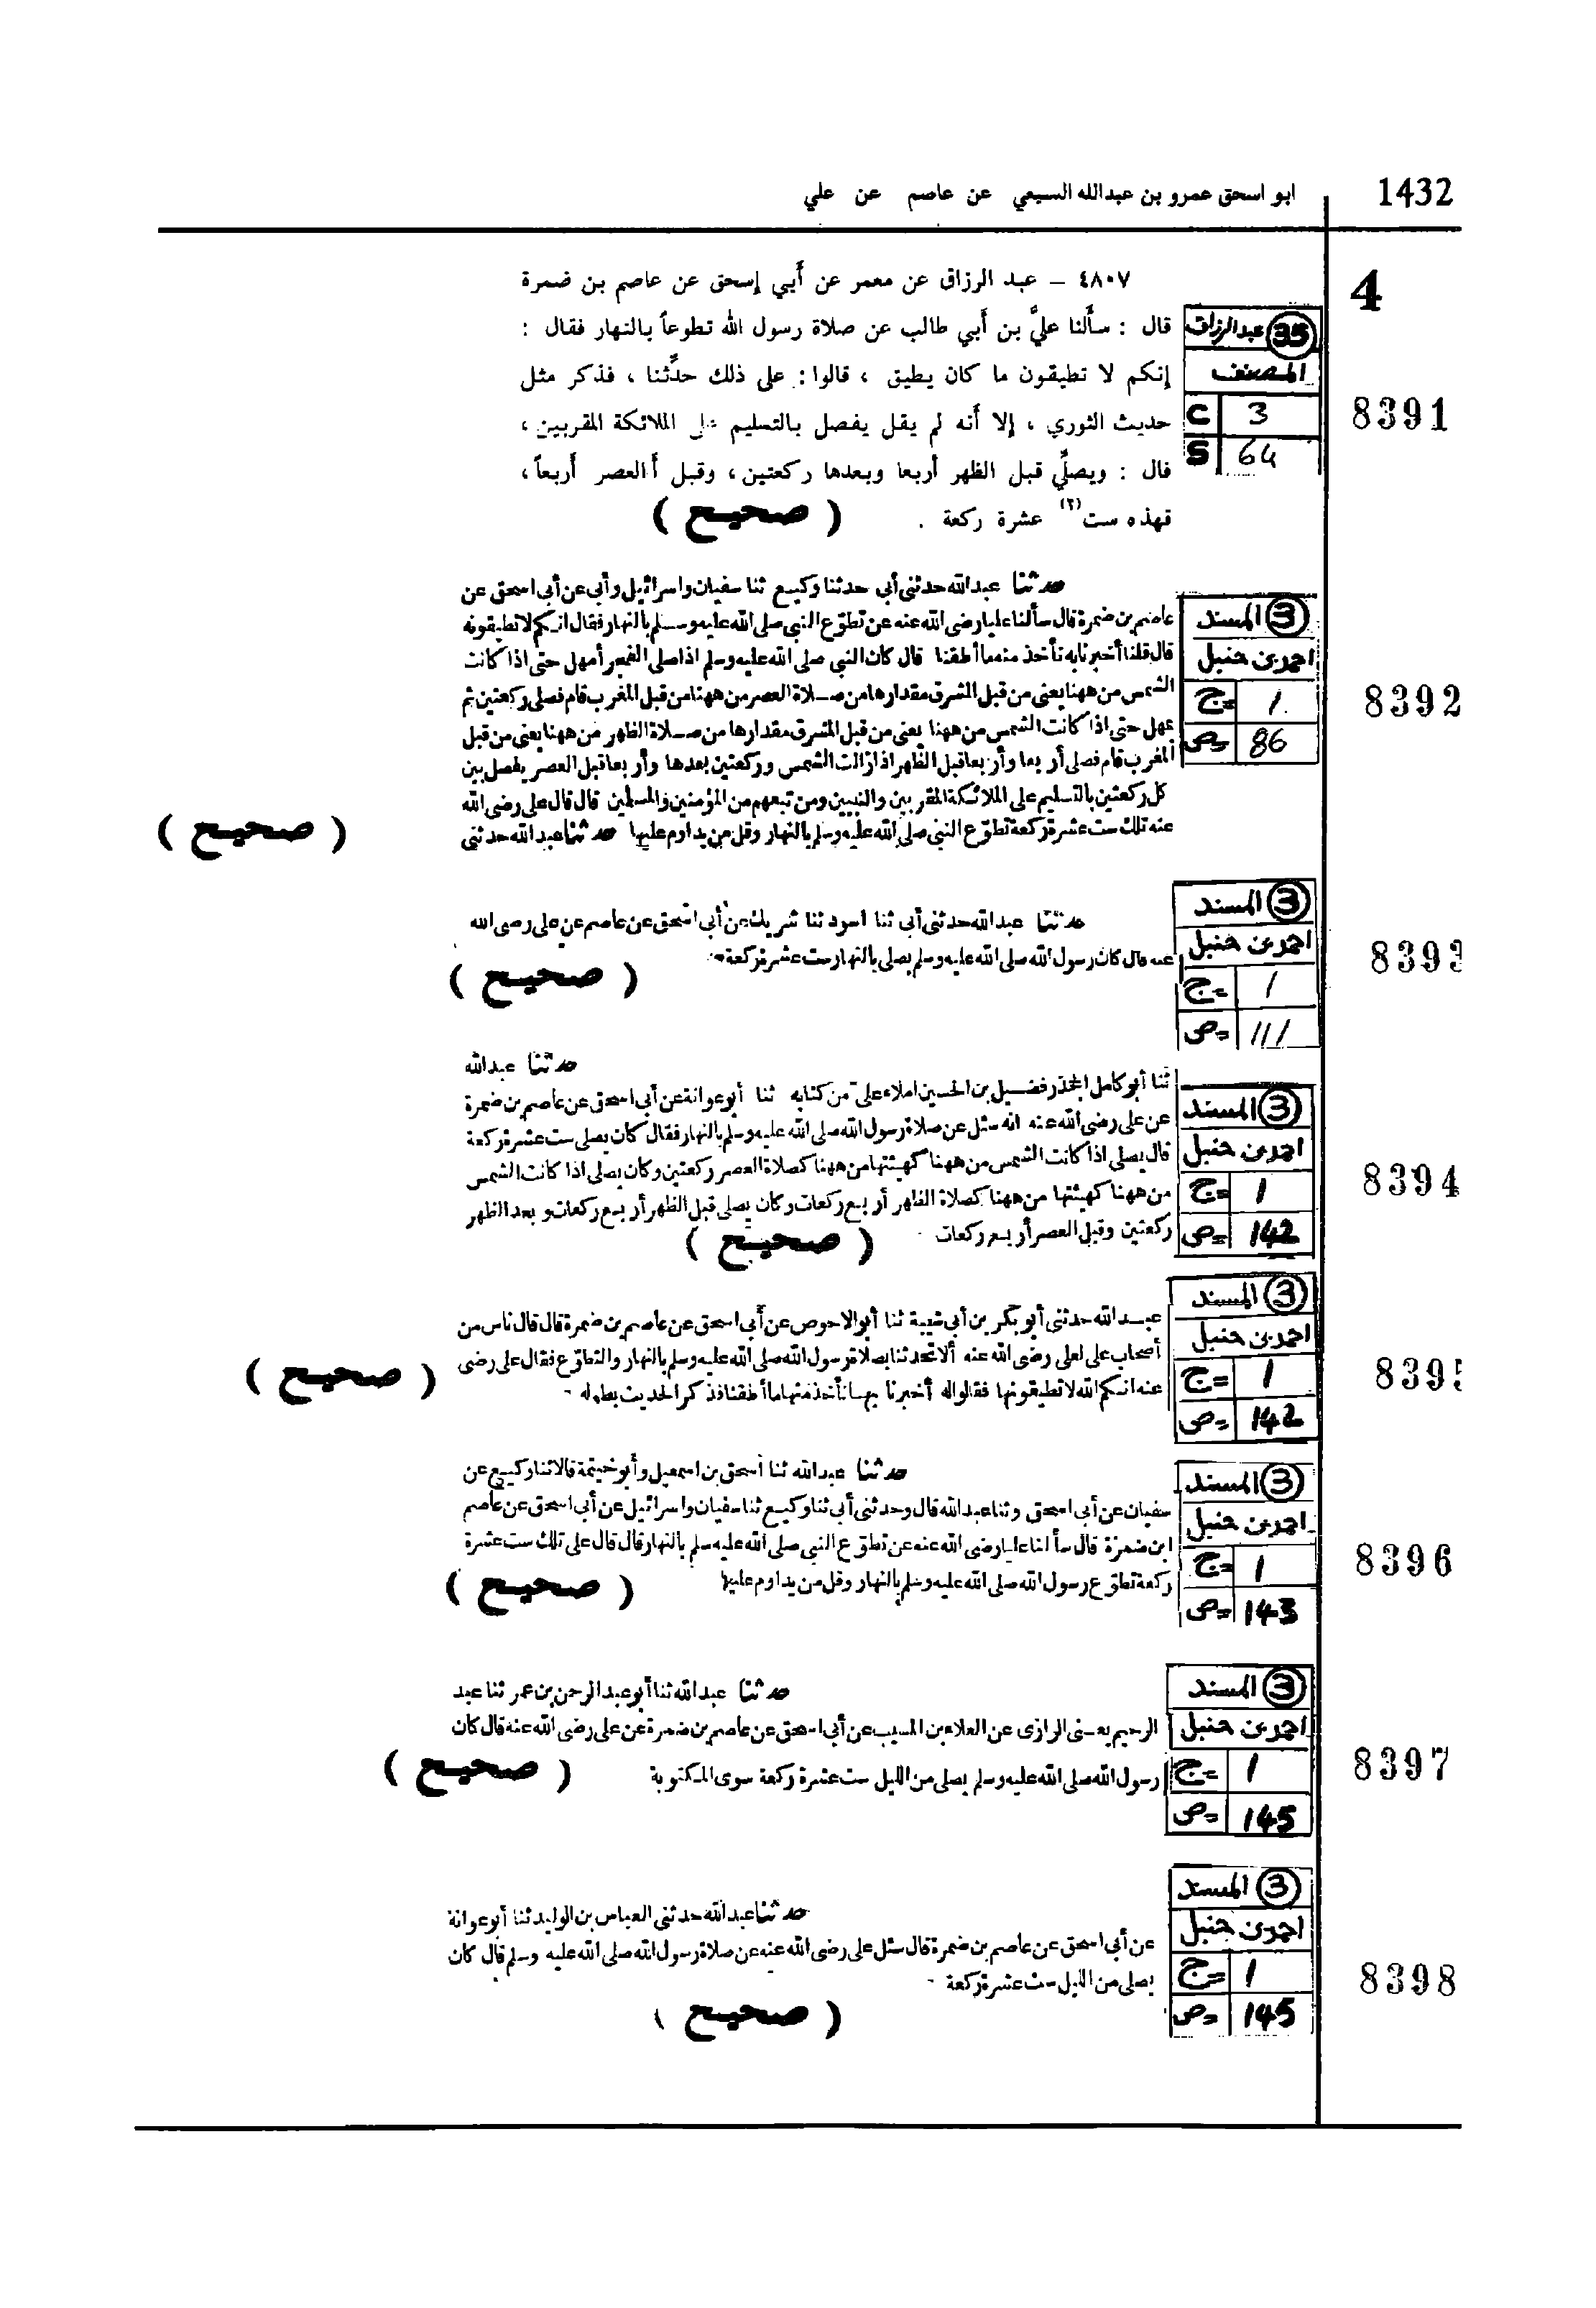 1432
ابو اسحق عمرو بن عبدالله السبيعي عن عاصم عن علي
4
8391
(35) عبدالرزاق
المصنف
C 3
S 64
٤٨٠٧ – عبد الرزاق عن معمر عن أبي إسحق عن عاصم بن ضمرة
قال : سألنا عليَّ بن أبي طالب عن صلاة رسول الله تطوعاً بالنهار فقال :
إنكم لا تطيقون ما كان يطيق ، قالوا : على ذلك حدِّثنا ، فذكر مثل
حديث الثوري ، إلا أنه لم يقل يفصل بالتسليم على الملائكة المقربين ،
قال : ويصلِّي قبل الظهر أربعا وبعدها ركعتين ، وقبل أالعصر أربعاً ،
فهذه ست(٢) عشرة ركعة .
( صحيح )
8392
(3) المسند
احمد بن حنبل
ج= 1
ص= 86
حدثنا عبدالله حدثني أبي حدثنا وكيع ثنا سفيان واسرائيل وأبي عن أبي اسحق عن
عاصم بن ضمرة قال سألنا عليا رضى الله عنه عن تطوع النبي صلى الله عليه وسلم بالنهار فقال انكم لا تطيقونه
قال قلنا أخبرنا به نأخذ منه ما أطقنا قال كان النبي صلى الله عليه وسلم اذا صلى الفجر أمهل حتى اذا كانت
الشمس من ههنا يعنى من قبل المشرق مقدارها من صلاة العصر من ههنا من قبل المغرب قام فصلى ركعتين ثم
يمهل حتى اذا كانت الشمس من ههنا يعنى من قبل المشرق مقدارها من صلاة الظهر من ههنا يعنى من قبل
المغرب قام فصلى أربعا وأربعا قبل الظهر اذا زالت الشمس وركعتين بعدها وأربعا قبل العصر يفصل بين
كل ركعتين بالتسليم على الملائكة المقربين والنبيين ومن تبعهم من المؤمنين والمسلمين قال قال على رضى الله
عنه تلك ست عشرة ركعة تطوع النبي صلى الله عليه وسلم بالنهار وقل من يداوم عليها حدثنا عبدالله حدثنى
( صحيح )
8393
(3) المسند
احمد بن حنبل
ج= 1
ص= 111
حدثنا عبدالله حدثني أبي ثنا أسود ثنا شريك عن أبي اسحق عن عاصم عن على رضى الله
عنه قال كان رسول الله صلى الله عليه وسلم يصلى بالنهار ست عشرة ركعة
( صحيح )
8394
(3) المسند
احمد بن حنبل
ج= 1
ص= 142
حدثنا عبدالله
ثنا أبو كامل الجحدر فضيل بن الحسين املاء على من كتابه ثنا أبو عوانة عن أبي اسحق عن عاصم بن ضمرة
عن على رضى الله عنه انه سئل عن صلاة رسول الله صلى الله عليه وسلم بالنهار فقال كان يصلى ست عشرة ركعة
قال يصلى اذا كانت الشمس من ههنا كهيئتها من ههنا كصلاة العصر ركعتين وكان يصلى اذا كانت الشمس
من ههنا كهيئتها من ههنا كصلاة الظهر أربع ركعات وكان يصلى قبل الظهر أربع ركعات وبعد الظهر
ركعتين وقبل العصر أربع ركعات
( صحيح )
8395
(3) المسند
احمد بن حنبل
ج= 1
ص= 142
عبدالله حدثنى أبو بكر بن أبي شيبة ثنا أبو الاحوص عن أبي اسحق عن عاصم بن ضمرة قال قال ناس من
أصحاب على لعلى رضى الله عنه ألا تحدثنا بصلاة رسول الله صلى الله عليه وسلم بالنهار والتطوع فقال على رضى
عنه انكم الله لا تطيقونها فقالوا له أخبرنا بها نأخذ منها ما أطقنا فذكر الحديث بطوله -
( صحيح )
8396
(3) المسند
احمد بن حنبل
ج= 1
ص= 143
حدثنا عبدالله ثنا اسحق بن اسمعيل وأبو خيثمة قالا ثنا وكيع عن
سفيان عن أبي اسحق وثنا عبدالله قال وحدثنى أبي ثنا وكيع ثنا سفيان واسرائيل عن أبي اسحق عن عاصم
ابن ضمرة قال سألنا عليا رضى الله عنه عن تطوع النبي صلى الله عليه وسلم بالنهار قال قال على تلك ست عشرة
ركعة تطوع رسول الله صلى الله عليه وسلم بالنهار وقل من يداوم عليها
( صحيح )
8397
(3) المسند
احمد بن حنبل
ج= 1
ص= 145
حدثنا عبدالله ثنا أبو عبد الرحمن بن عمر ثنا عبد
الرحيم يعنى الرازى عن العلاء بن المسيب عن أبي اسحق عن عاصم بن ضمرة عن على رضى الله عنه قال كان
رسول الله صلى الله عليه وسلم يصلى من الليل ست عشرة ركعة سوى المكتوبة
( صحيح )
8398
(3) المسند
احمد بن حنبل
ج= 1
ص= 145
حدثنا عبدالله حدثنى العباس بن الوليد ثنا أبو عوانة
عن أبي اسحق عن عاصم بن ضمرة قال سئل على رضى الله عنه عن صلاة رسول الله صلى الله عليه وسلم قال كان
يصلى من الليل ست عشرة ركعة -
( صحيح )